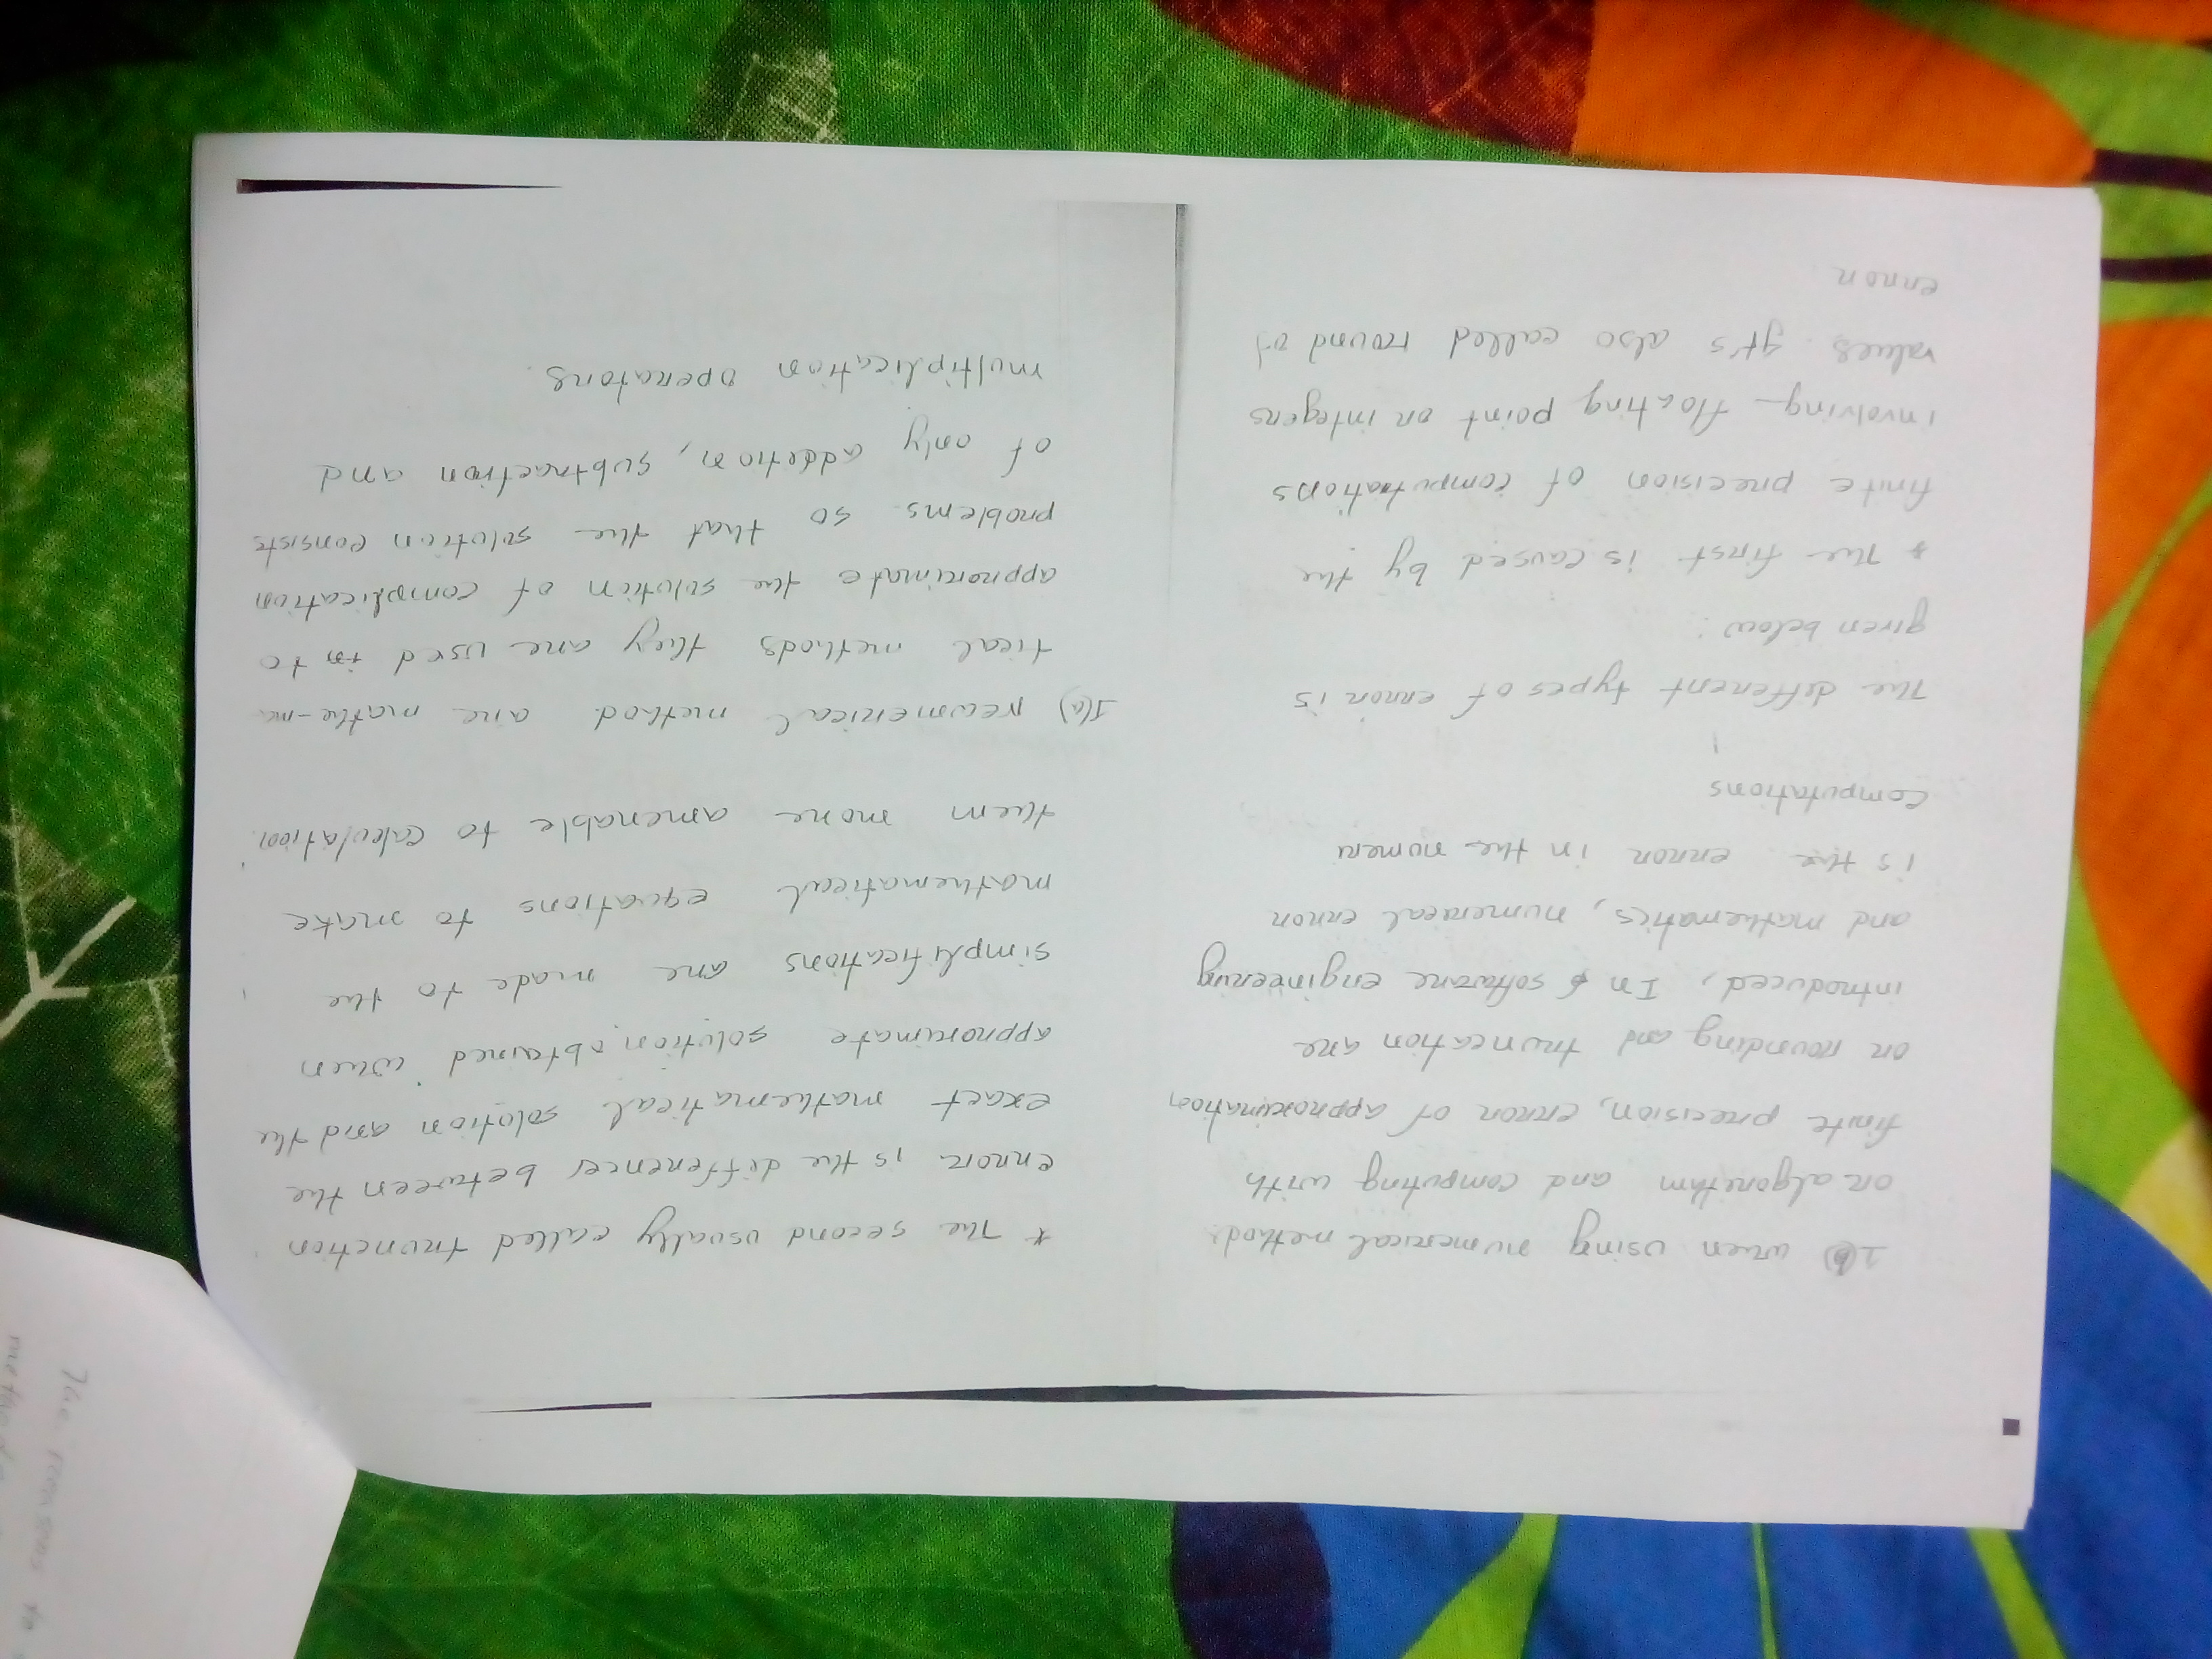 1(b) when using numerical method
or algorithm and computing with
finite precision, error of approximation
or rounding and truncation are
introduced, In software engineering
and mathematics, numerical error
is the error in the numeri
computations
The different types of error is
given below:
* The first is caused by the
finite precision of computations
involving floating point or integers
values. It's also called round of
error
* The second usually called trunction
error is the differences between the
exact mathematical solution and the
approximate solution obtained when
simplifications are made to the
mathematical equations to make
them more amenable to calculation
1(a) method are mathe-ma
tical methods they are used in to
approximate the solution of complication
problems so that the solution consists
of only addition, subtraction and
multiplication operators.
The reasons to